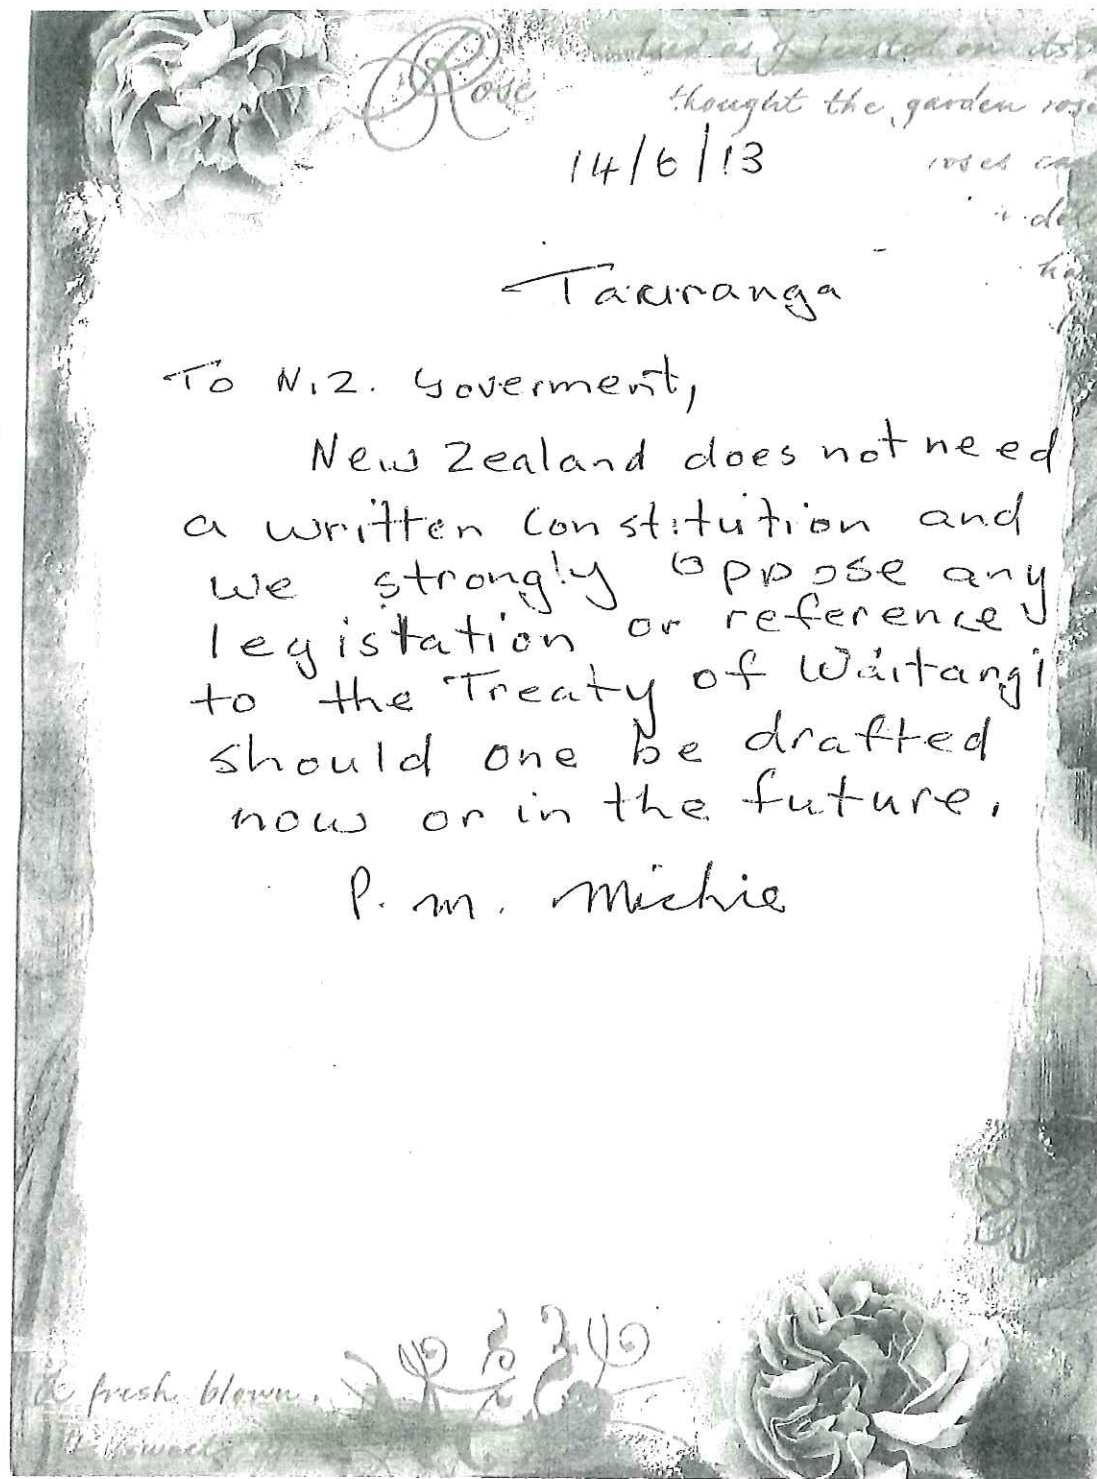 Rose
thought the garden rose
roses
14/6/13
Tauranga
To N.Z. Goverment,
New Zealand does not need
a written constitution and
we strongly oppose any
legistation or reference
to the Treaty of Waitangi
should one be drafted
now or in the future.
P. M. Michie
fresh blown.